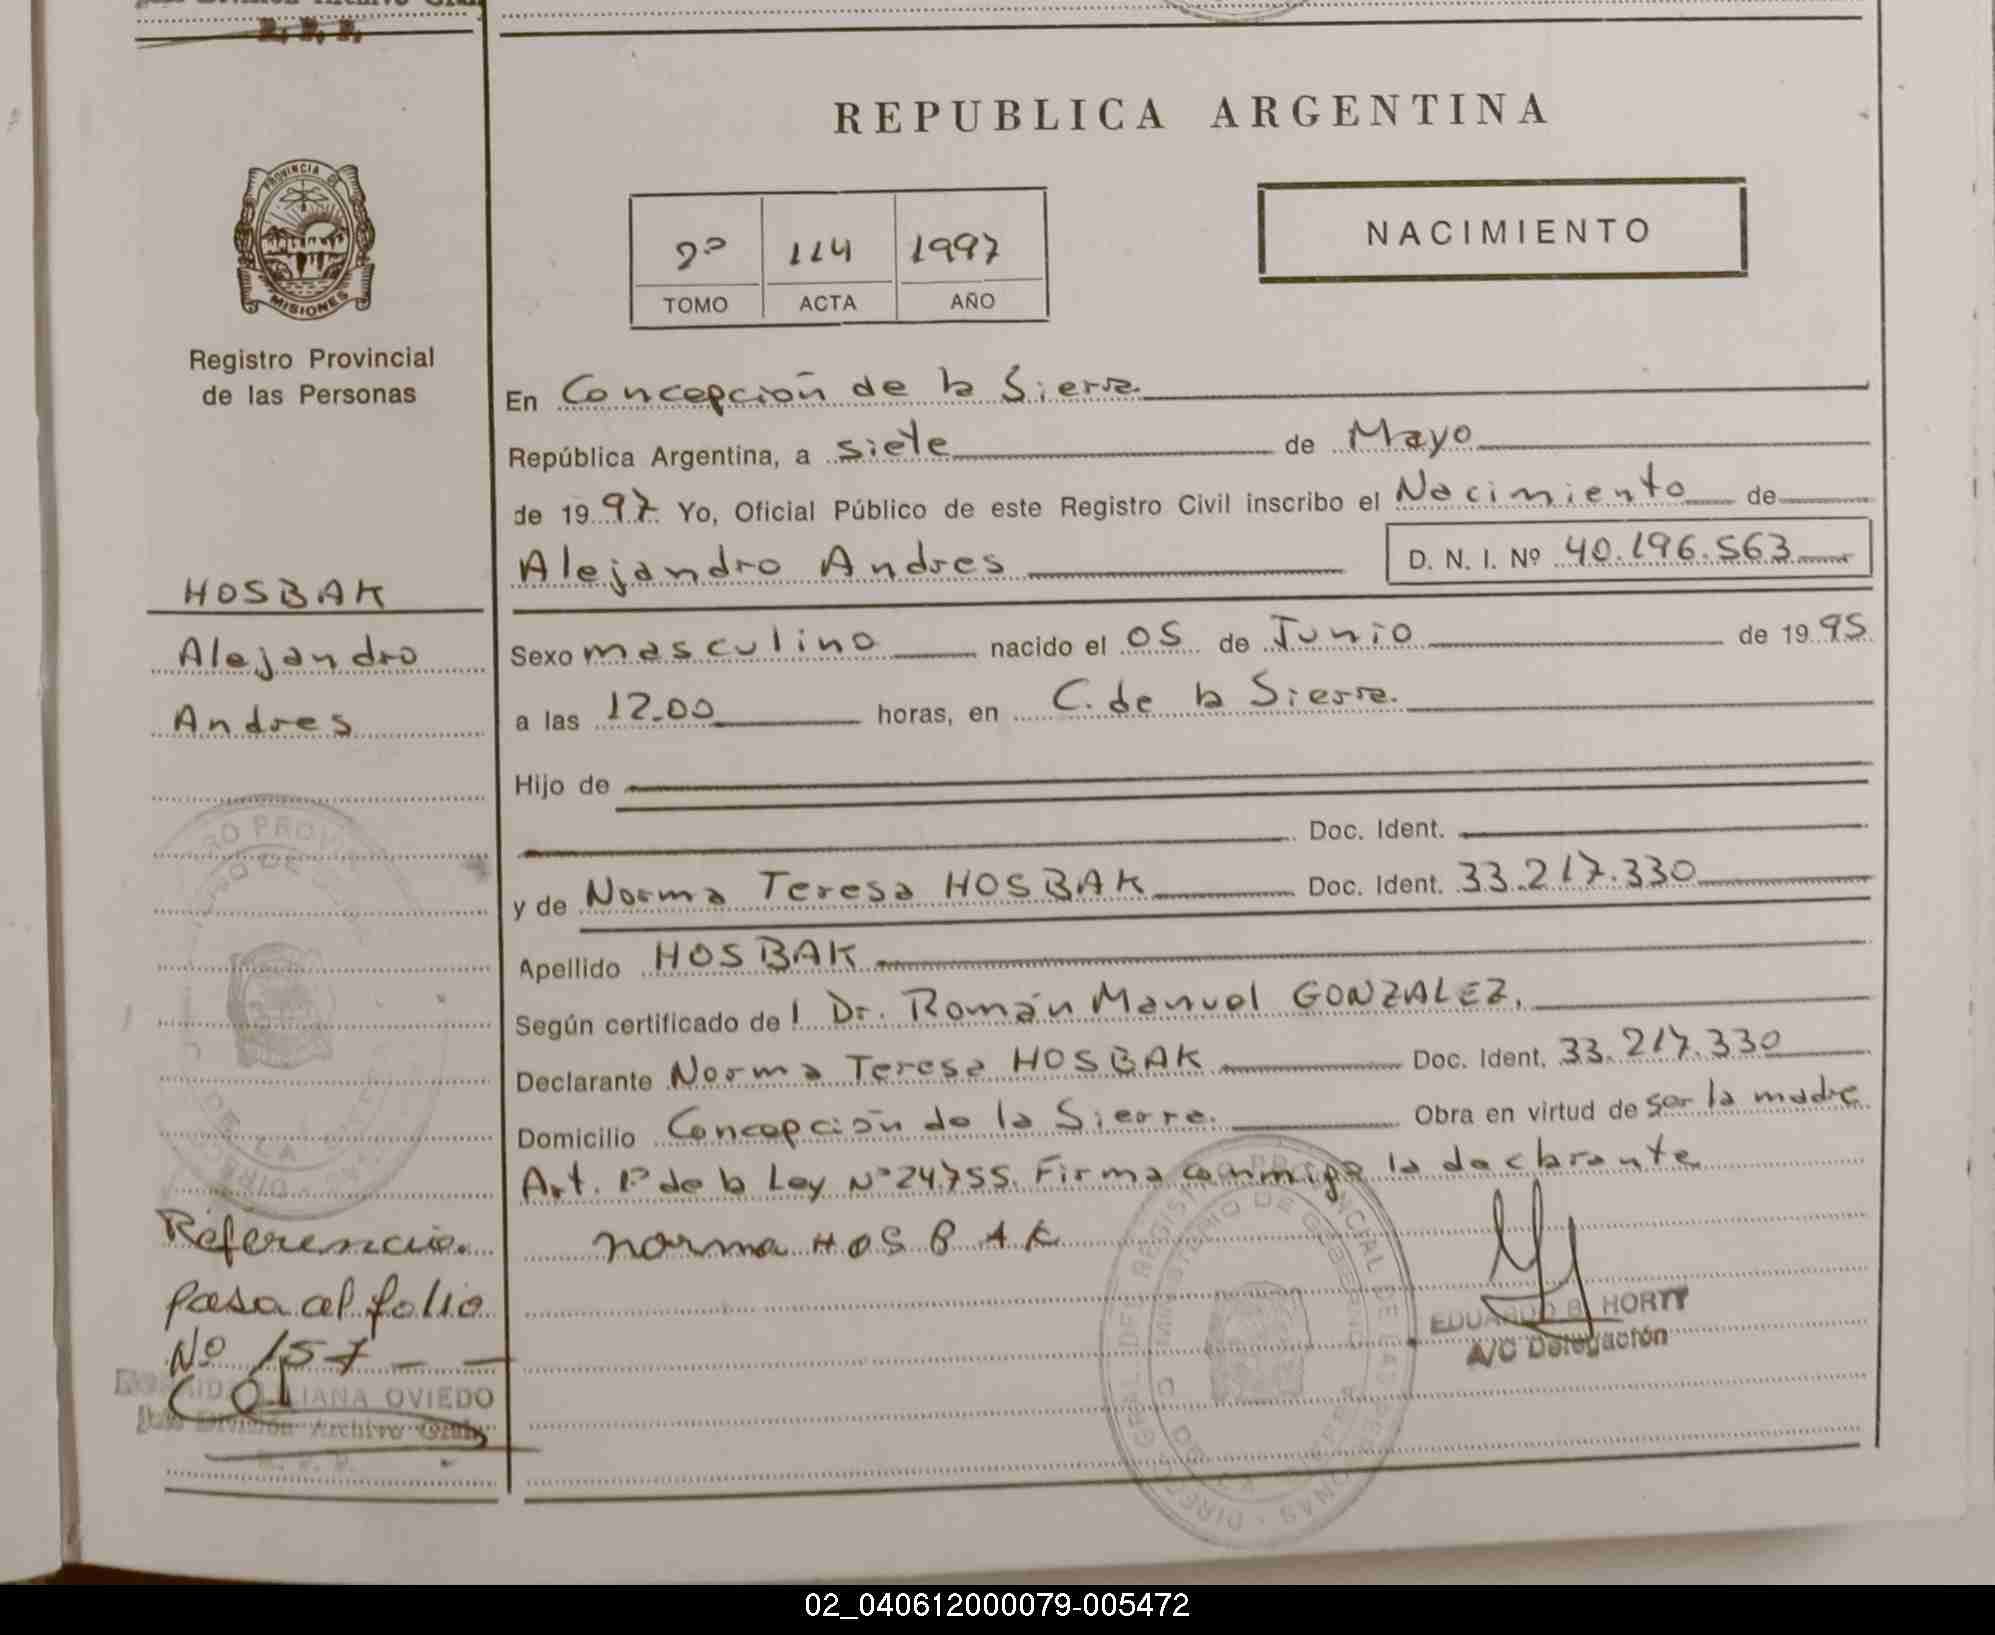 REPUBLICA ARGENTINA
PROVINCIA DE
MISIONES
Registro Provincial
de las Personas
2º 114 1997
TOMO ACTA AÑO
NACIMIENTO
En Concepción de la Sierra
República Argentina, a siete de Mayo
de 1997 Yo, Oficial Público de este Registro Civil inscribo el Nacimiento de
Alejandro Andres D. N. I. Nº 40.196.563
HOSBAK
Alejandro
Andres
Sexo masculino nacido el 05 de Junio de 1995
a las 12.00 horas, en C. de la Sierra.
Hijo de
Doc. Ident.
y de Norma Teresa HOSBAK Doc. Ident. 33.217.330
Apellido HOSBAK
Según certificado de l Dr. Román Manuel GONZALEZ.
Declarante Norma Teresa HOSBAK Doc. Ident. 33.217.330
Domicilio Concepción de la Sierra. Obra en virtud de ser la madre
Art. 1º de la Ley Nº 24.755. Firma conmigo la declarante
norma HOSBAK
EDUARDO B. HORTT
A/C Delegación
Referencia
pasa al folio
Nº 157
LILIANA OVIEDO
División Archivo Gral.
R. P. P.
02_040612000079-005472